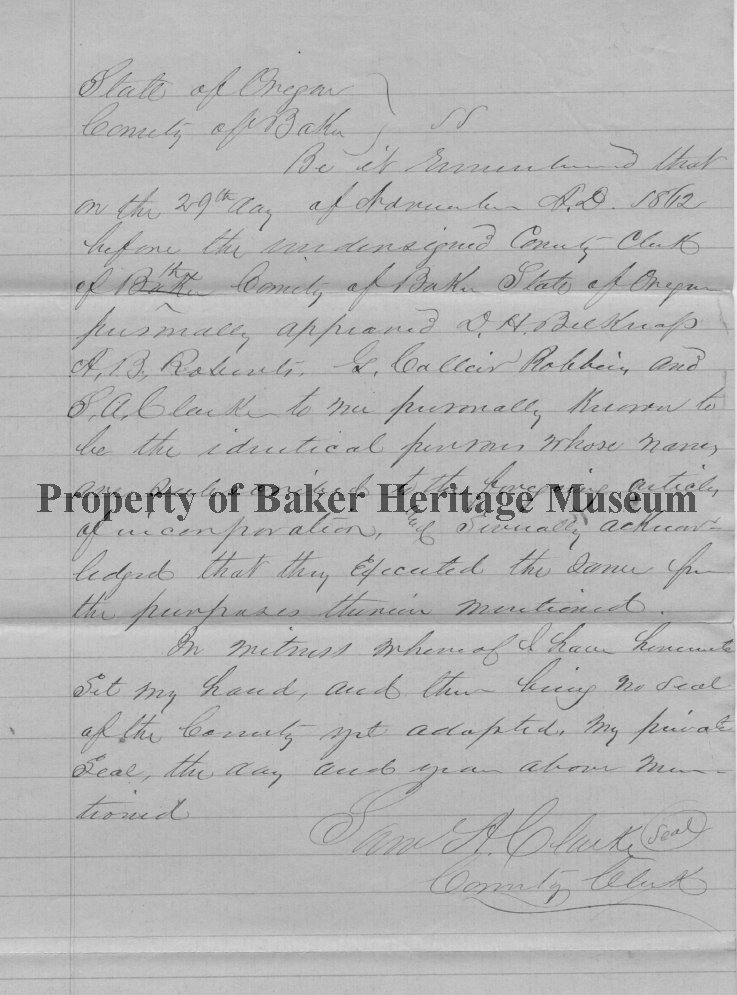 State of Oregon
County of Baker } SS
Be it Remembered that
on the 29th day of November A.D. 1862
before the undersigned County Clerk
of Baker the County of Baker State of Oregon
personally appeared D. H. Belknap
A. B. Roberts. G. Collier Robbins and
S. A. Clarke to me personally Known to
be the identical persons whose names
are subscribed to the foregoing articles
Property of Baker Heritage Museum
of incorporation, and Severally acknow-
ledged that they Executed the Same for
the purposes therein mentioned.
In witness whereof I have hereunto
Set my hand, and there being no Seal
of the County yet adopted, my private
Seal, the day and year above men-
tioned
Sam A. Clarke Seal
County Clerk